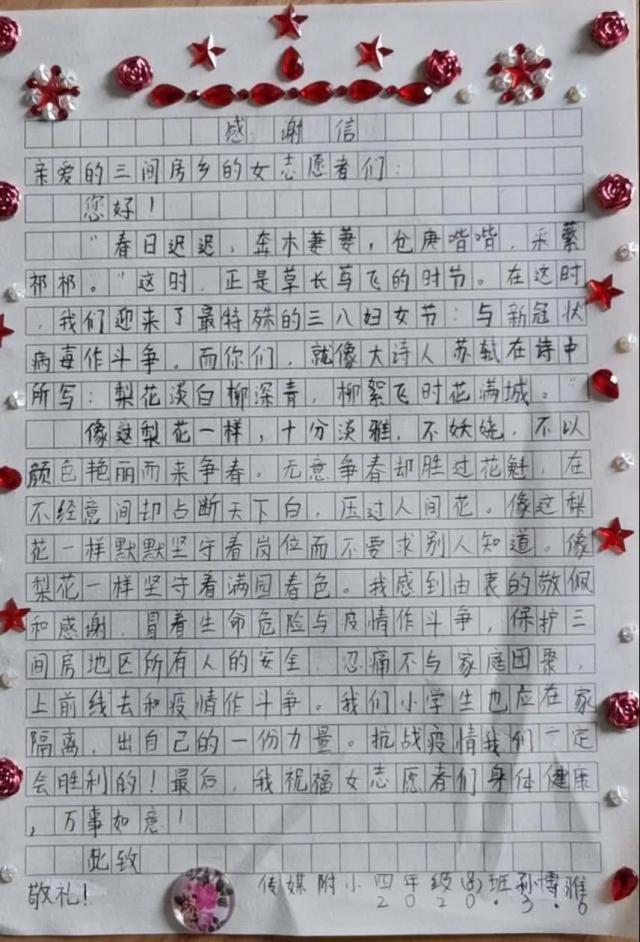 感谢信
亲爱的三间房乡的女志愿者们:
您好!
"春日迟迟,奔木萋萋,仓庚喈喈,采蘩
祁祁。"这时,正是草长莺飞的时节。在这时
,我们迎来了最特殊的三八妇女节:与新冠状
病毒作斗争。而你们,就像大诗人苏轼在诗中
所写:梨花淡白柳深青,柳絮飞时花满城。"
像这梨花一样,十分淡雅,不妖娆,不以
颜色艳丽而来争春。无意争春却胜过花魁,在
不经意间却占断天下白,压过人间花。像这梨
花一样默默坚守着岗位而不要求别人知道。像
梨花一样坚守着满园春色。我感到由衷的敬佩
和感谢,冒着生命危险与疫情作斗争,保护三
间房地区所有人的安全,忍痛不与家庭团聚,
上前线去和疫情作斗争。我们小学生也应在家
隔离,出自己的一份力量。抗战疫情我们一定
会胜利的!最后,我祝福女志愿者们身体健康
,万事如意!
此致
敬礼!
传媒附小四年级(8)班孙博雅
2020.3.6